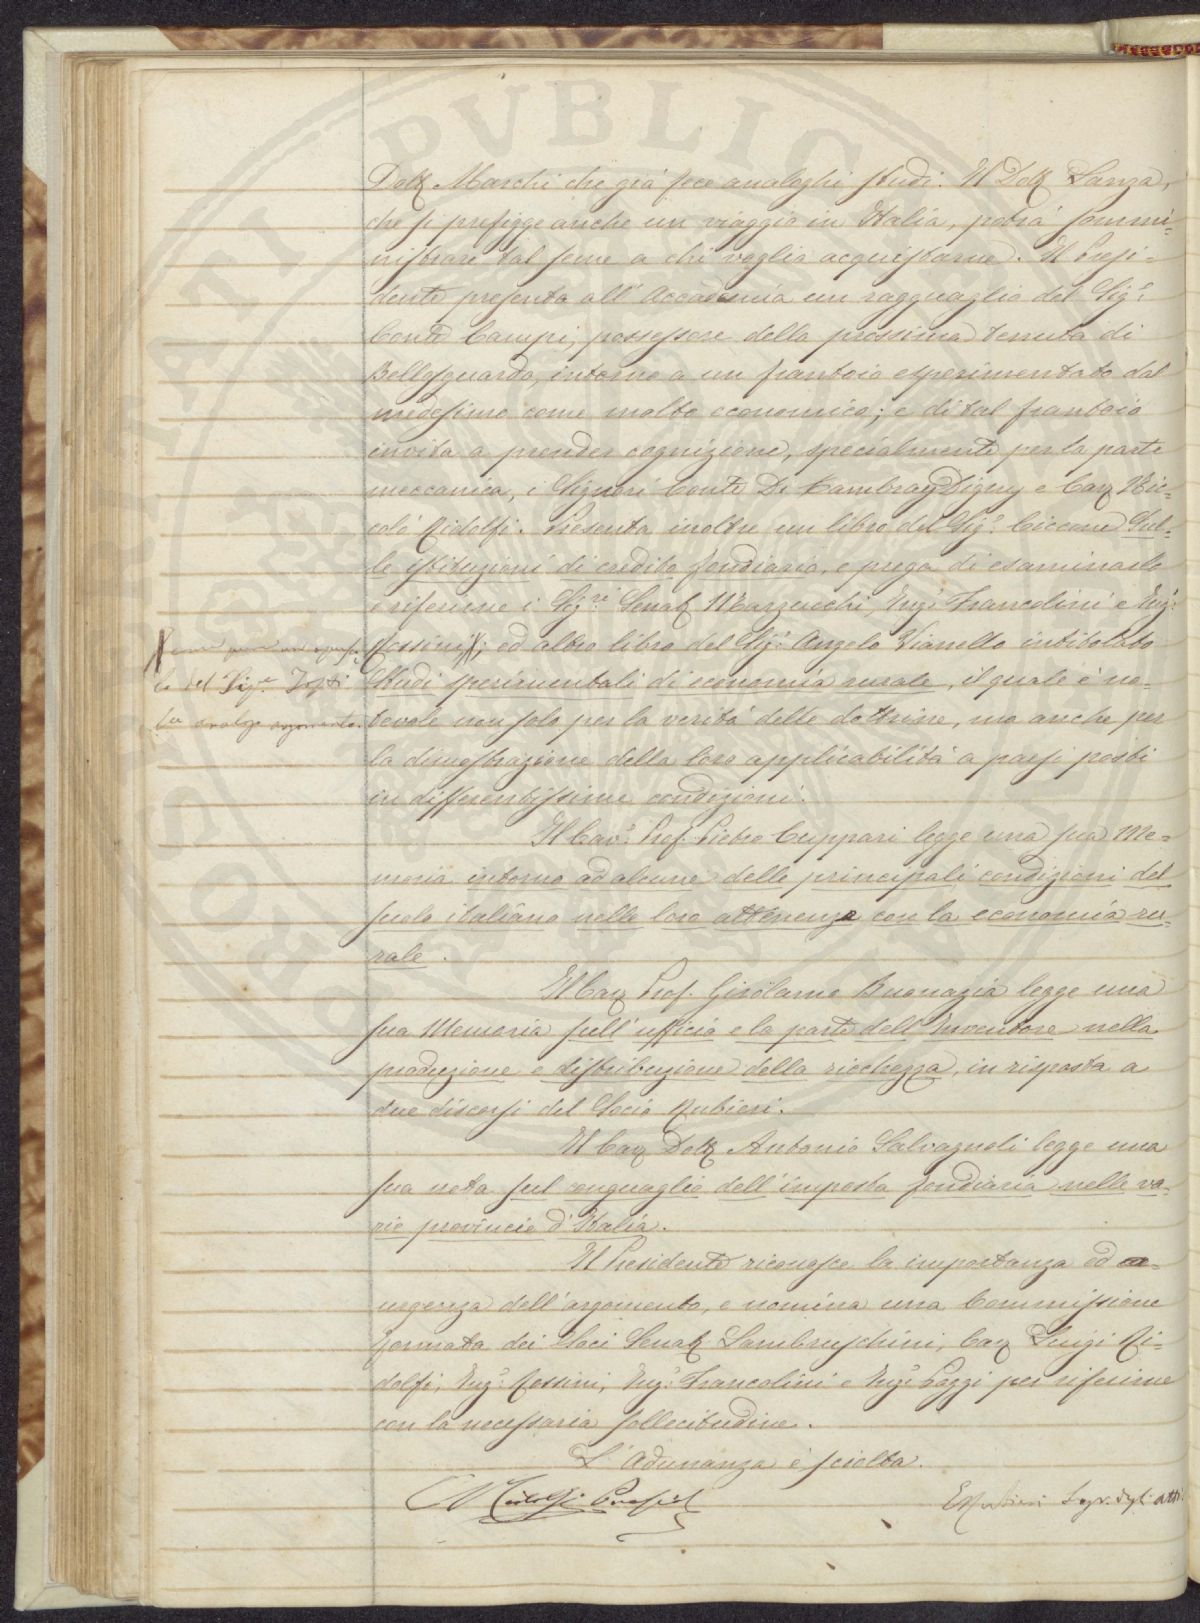 Dott Marchi che già fece analoghi studi. Il Dott Lanza,
che si prefigge anche un viaggio in Italia, potrà sommi=
nistrare tal seme a chi voglia acquistarne. Il Presi=
dente presenta all'Accademia un ragguaglio del Sig.r
Conte Campi, possessore della prossima tenuta di
Bellosguardo, intorno a un frantoio esperimentato dal
medesimo come molto economico; e di tal frantoio
invita a prender cognizione, specialmente per la parte
meccanica, i Signori Conte Di Cambray Digny e Cav Nic=
colò Ridolfi. Presenta inoltre un libro del Sig.r Ciccone Sul=
le istituzioni di credito fondiario, e prega di esaminarlo
e riferirne i Sig.ri Senat Marzucchi, Ing.r Francolini e Ing.r
Rossini; ed altro libro del Sig.r Angelo Vianello intitolato
come pure un opusco
lo del Sig.r
su analogo argomento.
Studi sperimentali di economia rurale, il quale è no=
tevole non solo per la verità delle dottrine, ma anche per
la dimostrazione della loro applicabilità a paesi posti
in differentissime condizioni.
Il Cav.r Prof. Pietro Cuppari legge una sua Me=
moria intorno ad alcune delle principali condizioni del
suolo italiano nelle loro attenenze con la economia ru=
rale.
Il Cav Prof. Girolamo Buonazia legge una
sua Memoria sull'ufficio e la parte dell'Inventore nella
produzione e distribuzione della ricchezza, in risposta a
due discorsi del Socio Rubieri.
Il Cav Dott Antonio Salvagnoli legge una
sua nota sul conguaglio dell'imposta fondiaria nelle va=
rie provincie d'Italia.
Il Presidente riconosce la importanza ed
urgenza dell'argomento, e nomina una Commissione
formata dei Soci Senat Lambruschini, Cav Luigi Ri=
dolfi, Ing.r Rossini, Ing.r Francolini e Ing.r Poggi per riferirne
con la necessaria sollecitudine.
L'Adunanza è sciolta.
C Ridolfi Presid.
E Rubieri Segr. degli atti.
PVBLICA